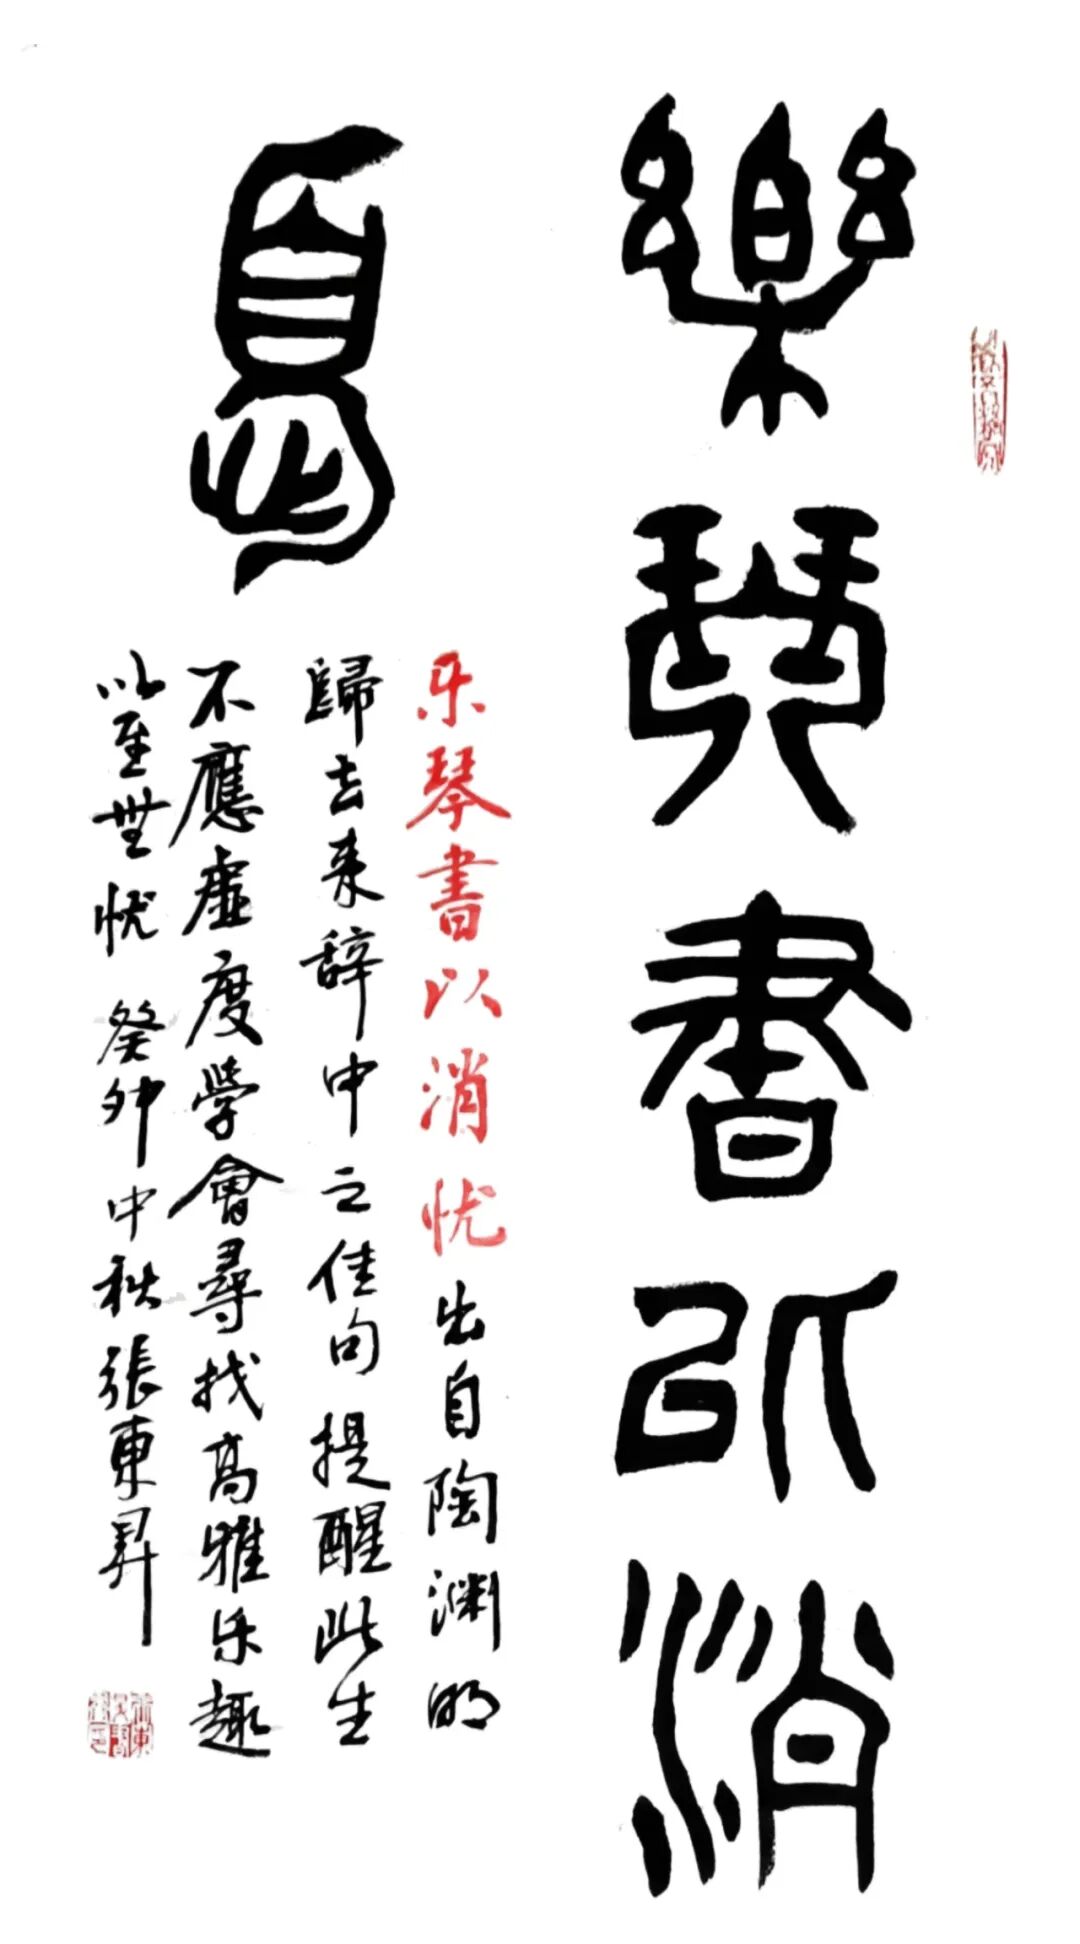 樂琴書以消
憂
乐琴書以消忧出自陶渊明
歸去来辞中之佳句提醒此生
不應虚度学會尋找高雅乐趣
以至無忧癸卯中秋張東昇